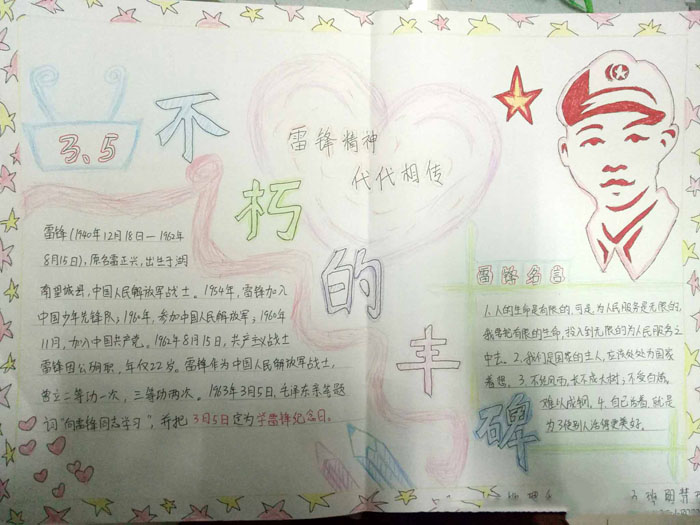 3.5
不朽的丰碑
雷锋精神
代代相传
雷锋(1940年12月18日—1962年
8月15日),原名雷正兴,出生于湖
南望城县,中国人民解放军战士。1954年,雷锋加入
中国少年先锋队;1960年,参加中国人民解放军;1960年
11月,加入中国共产党。1962年8月15日,共产主义战士
雷锋因公殉职,年仅22岁。雷锋作为中国人民解放军战士,
曾立二等功一次,三等功两次。1963年3月5日,毛泽东亲笔题
词"向雷锋同志学习",并把3月5日定为学雷锋纪念日。
雷锋名言
1.人的生命是有限的,可是,为人民服务是无限的,
我要把有限的生命,投入到无限的为人民服务之
中去。2.我们是国家的主人,应该处处为国家
着想。3.不经风雨,长不成大树;不受百炼,
难以成钢。4.自己活着,就是
为了使别人活得更美好。